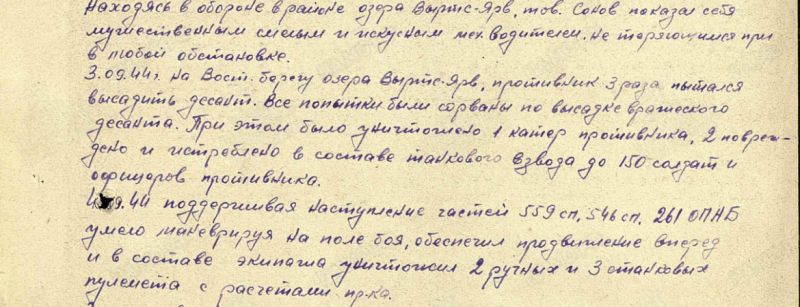 Находясь в обороне в районе озера Выртс-Ярв, тов. Сонов показал себя
мужественным смелым и искусным мех.водителем, не теряющимся при
в любой обстановке.
3.09.44г. на Вост. берегу озера Выртс-Ярв, противник 3 раза пытался
высадить десант. Все попытки были сорваны по высадке вражеского
десанта. При этом было уничтожено 1 катер противника, 2 повреж-
дено и истреблено в составе танкового взвода до 150 солдат и
офицеров противника.
09.44 поддерживая наступление частей 559 сп, 546 сп, 261 ОПАБ
умело маневрируя на поле боя, обеспечил продвижение вперед
и в составе экипажа уничтожил 2 ручных и 3 станковых
пулемета с расчетами пр-ка.